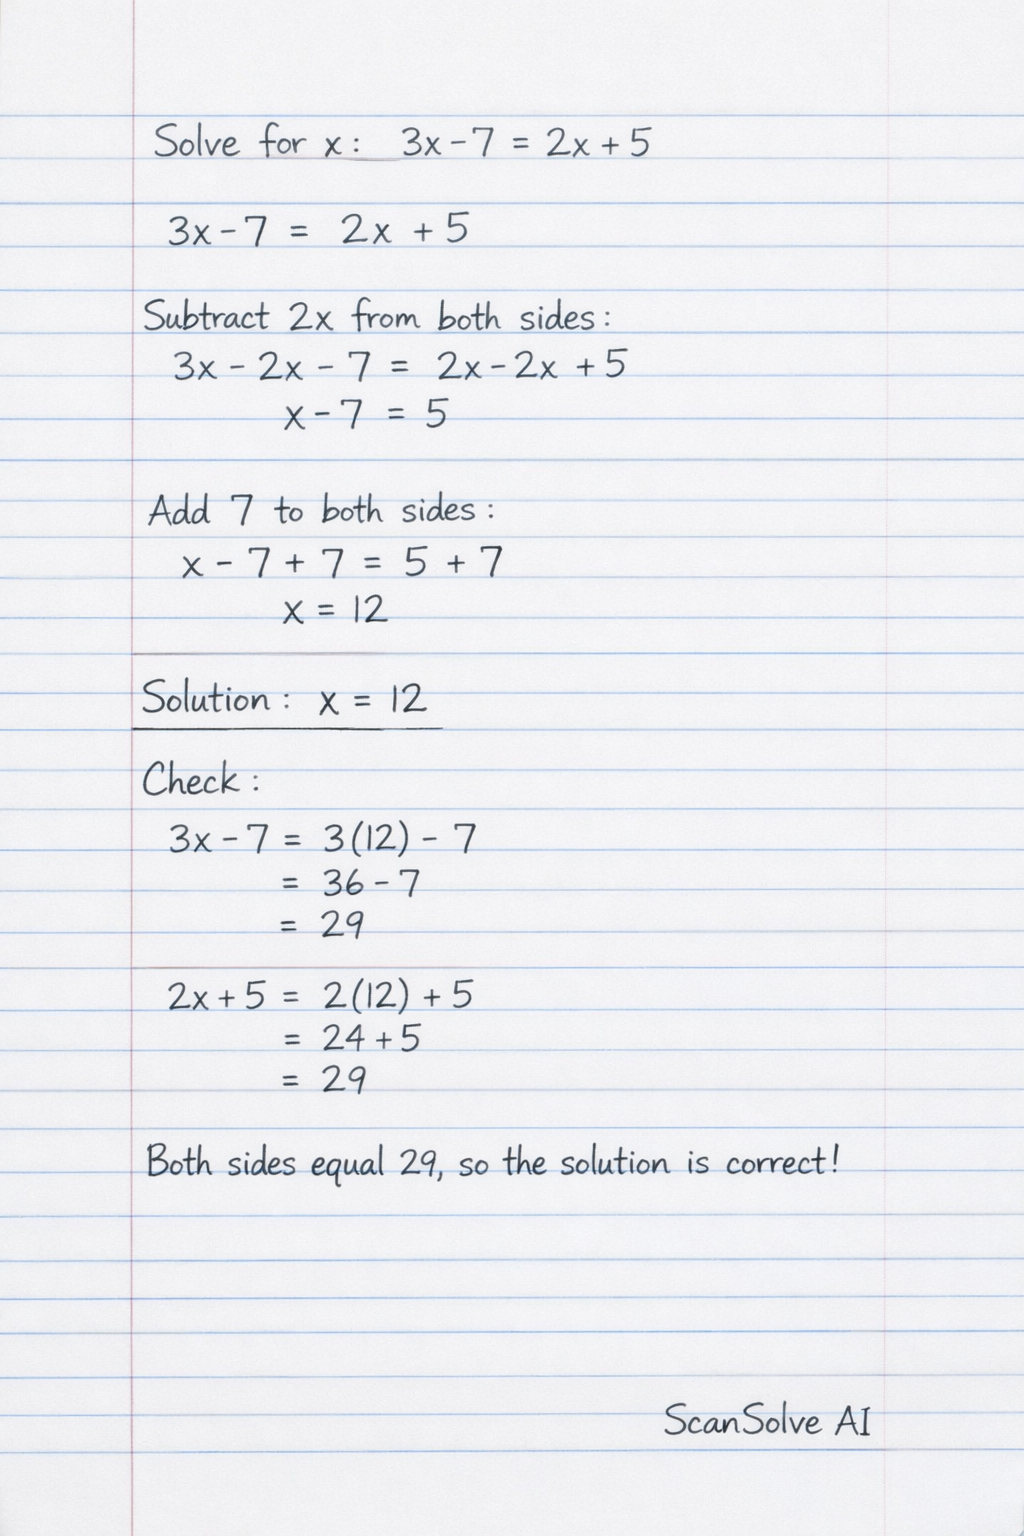 Solve for x: 3x-7 = 2x+5
3x-7 = 2x +5
Subtract 2x from both sides:
3x - 2x - 7 = 2x-2x +5
x-7 = 5
Add 7 to both sides:
x - 7 + 7 = 5 + 7
x = 12
Solution: x = 12
Check:
3x-7 = 3(12) - 7
= 36-7
= 29
2x+5 = 2(12) + 5
= 24+5
= 29
Both sides equal 29, so the solution is correct!
ScanSolve AI